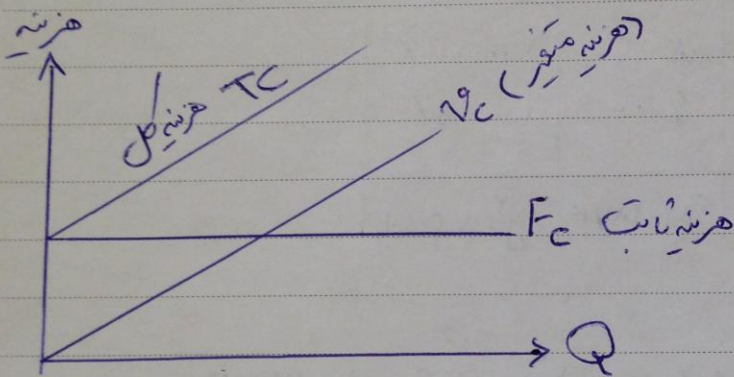 هزینه
هزینه کل TC
Vc (هزینه متغیر)
Fc هزینه ثابت
Q